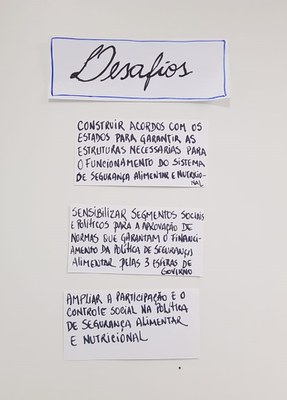 Desafios
CONSTRUIR ACORDOS COM OS
ESTADOS PARA GARANTIR AS
ESTRUTURAS NECESSÁRIAS PARA
O FUNCIONAMENTO DO SISTEMA
DE SEGURANÇA ALIMENTAR E NUTRICIO-
NAL
SENSIBILIZAR SEGMENTOS SOCIAIS
E POLÍTICOS PARA A APROVAÇÃO DE
NORMAS QUE GARANTAM O FINANCI-
AMENTO DA POLÍTICA DE SEGURANÇA
ALIMENTAR PELAS 3 ESFERAS DE
GOVERNO
AMPLIAR A PARTICIPAÇÃO E O
CONTROLE SOCIAL NA POLÍTICA
DE SEGURANÇA ALIMENTAR
E NUTRICIONAL